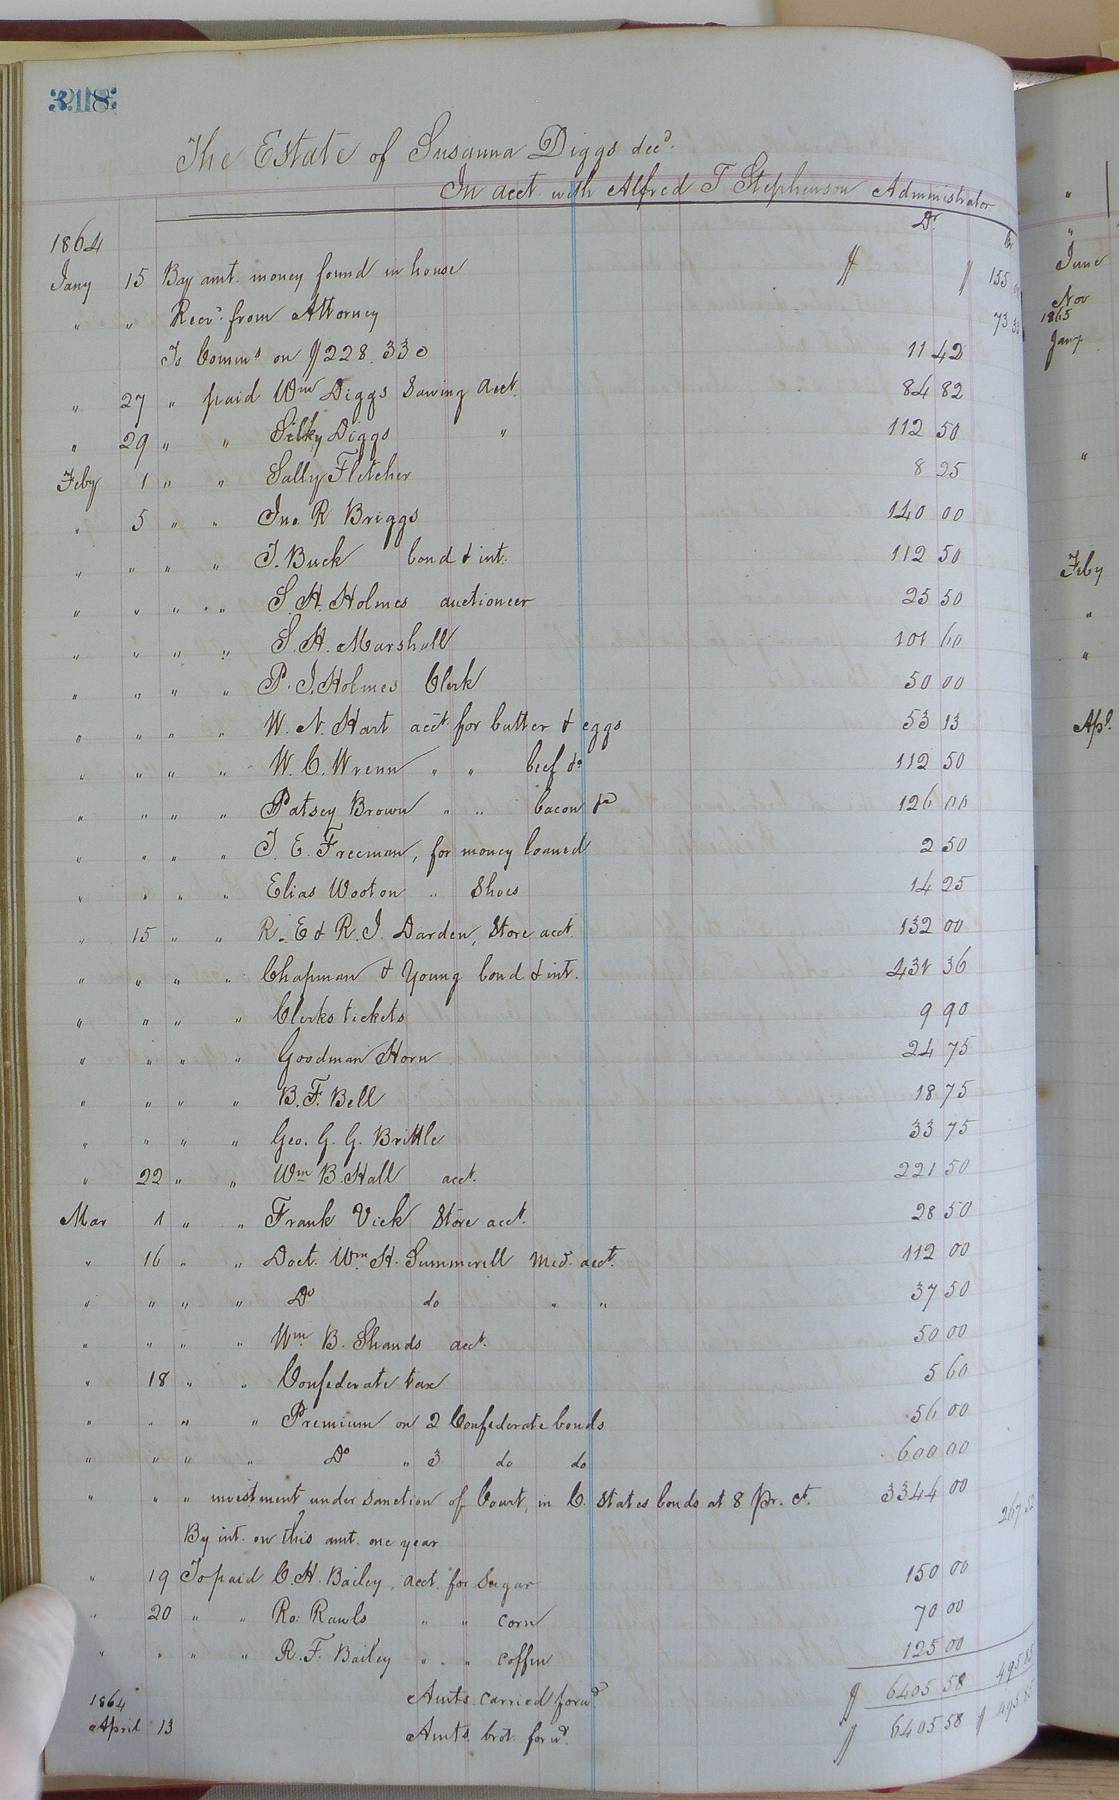 318
The Estate of Susanna Diggs decd.
In acct. with Alfred T Stephenson Administrator
Dr
1864
Jany 15 By amt. money found in house $ $ 155
" " Recd. from Attorney 73 33
To Comms on $228.330 11 42
" 27 " paid Wm Diggs Sawing Acct. 84 82
" 29 " " Silky Diggs " 112 50
Feby 1 " " Sally Fletcher 8 25
" 5 " " Jno. R Briggs 140 00
" " " " J. Buck bond & int. 112 50
" " " " S. H. Holmes auctioneer 25 50
" " " " S. H. Marshall 101 60
" " " " P. J. Holmes Clerk 50 00
" " " " W. N. Hart acct for butter & eggs 53 13
" " " " W. C. Wrenn " " beef &c 112 50
" " " " Patsey Brown " " bacon &c 126 00
" " " " J. E. Freeman, for money loaned 2 50
" " " " Elias Wooton " Shoes 14 25
" 15 " " R. E & R. J. Darden, Store acct. 132 00
" " " " Chapman & Young bond & int. 431 36
" " " " Clerks tickets 9 90
" " " " Goodman Horn 24 75
" " " " B. F. Bell 18 75
" " " " Geo. G. G. Brittle 33 75
" 22 " " Wm B. Hall acct. 221 50
Mar 1 " " Frank Vick Store acct. 28 50
" 16 " " Doct. Wm H. Summerell Med. acct. 112 00
" " " " Do do " " 37 50
" " " " Wm B. Shands acct. 50 00
" 18 " " Confederate tax 5 60
" " " " Premium on 2 Confederate bonds 56 00
" " " " Do " 3 do do 600 00
" " " investment under sanction of Court, in C. States bonds at 8 pr. ct. 3344 00
By int. on this amt. one year 267 52
" 19 To paid C. H. Bailey, acct. for Sugar 150 00
" 20 " " Ro: Rawls " " corn 70 00
" " " " R. F. Bailey " " coffin 125 00
Amts. carried forwd. $ 6405 58 495 85
1864
April 13 Amts. brot. forwd. $ 6405 58 $ 495 85
"
"
June
Nov
1865
Jany
"
Feby
"
"
Apl.